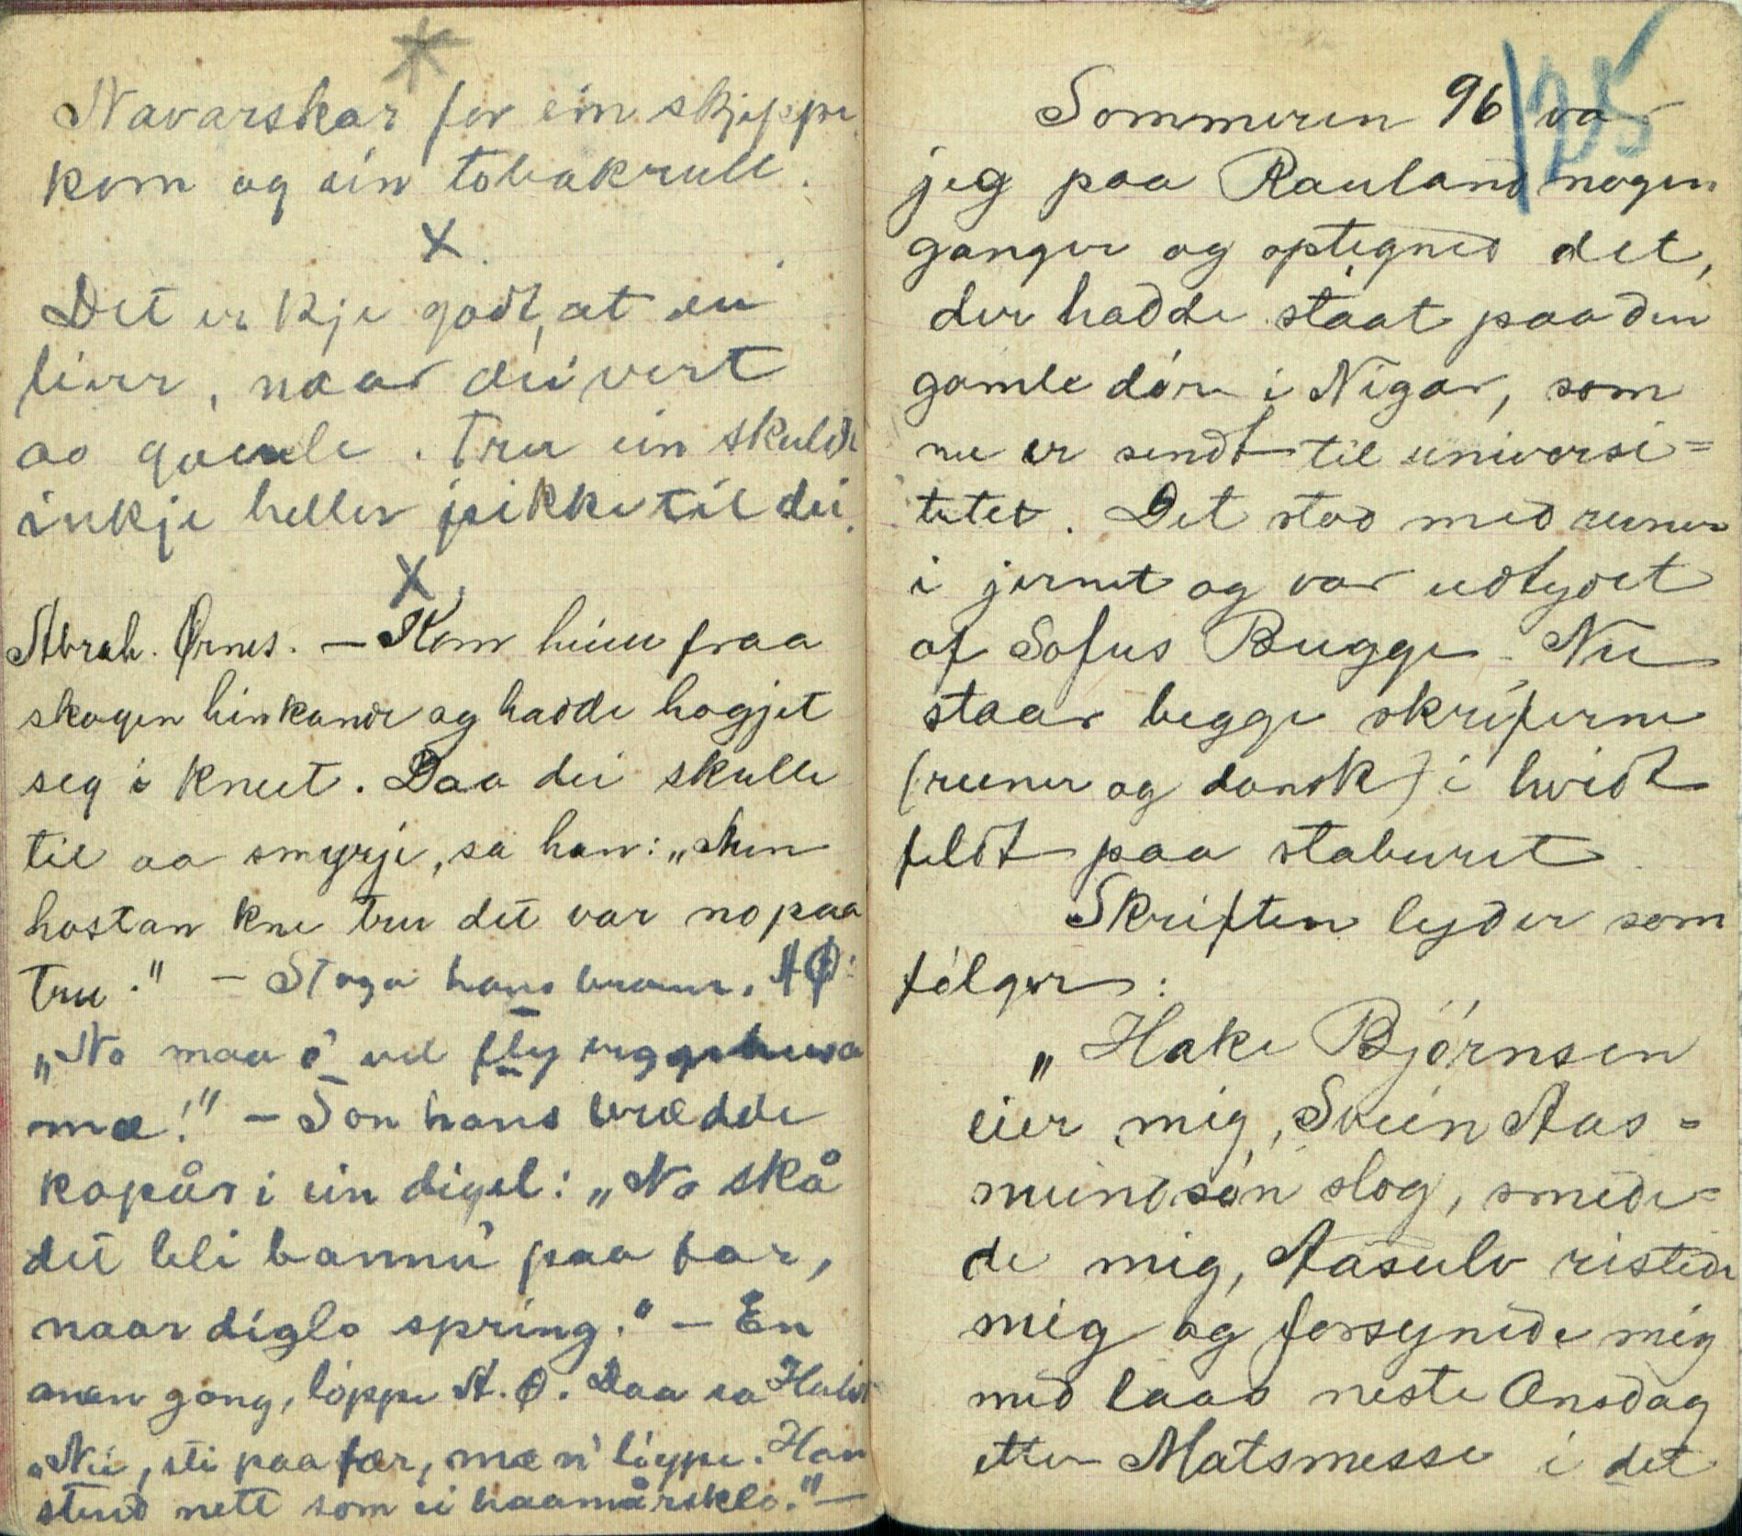 Navarskar for ein skjeppe
korn og ein tobakrull.
X
Det er kje godt, at ein
liver, naar dei vert
so gamle. Tru ein skulde
inkje heller pikke til dei.
X
Abrah. Ørnes. — Kom heim fraa
skogen hinkande og hadde hogjet
seg i kneet. Daa dei skulle
til aa smyrji, sa han: „Men
hostan kne tru det var no paa
tru." — Stoga hans brann. AØ:
„No maa ó vel fly
mæ!" — Son hans brædde
kopår i ein digel: „No skå
det bli bannú paa far,
naar diglo spring." — En
anen gong, löppe A. Ø. Daa sa
„Nei, sti paa far, mæ n' löype. Han
stend nett som ei haamårsklo." —
125
Sommeren 96 var
jeg paa Rauland nogen
ganger og optegned det,
der hadde staat paa den
gamle dör i Nigar, som
nu er sendt til universi=
tetet. Det stod med runer
i jernet og var udtydet
af Sofus Bugge. Nu
staar begge skrifterne
(runer og dansk) i hvidt
feldt paa staburet.
Skriften lyder som
fölger:
„Hake Björnsen
eier mig, Svein Aas=
mundsön slog, smede=
de mig, Aasulv ristede
mig og forsynede mig
med laas neste Onsdag
etter Matsmesse i det